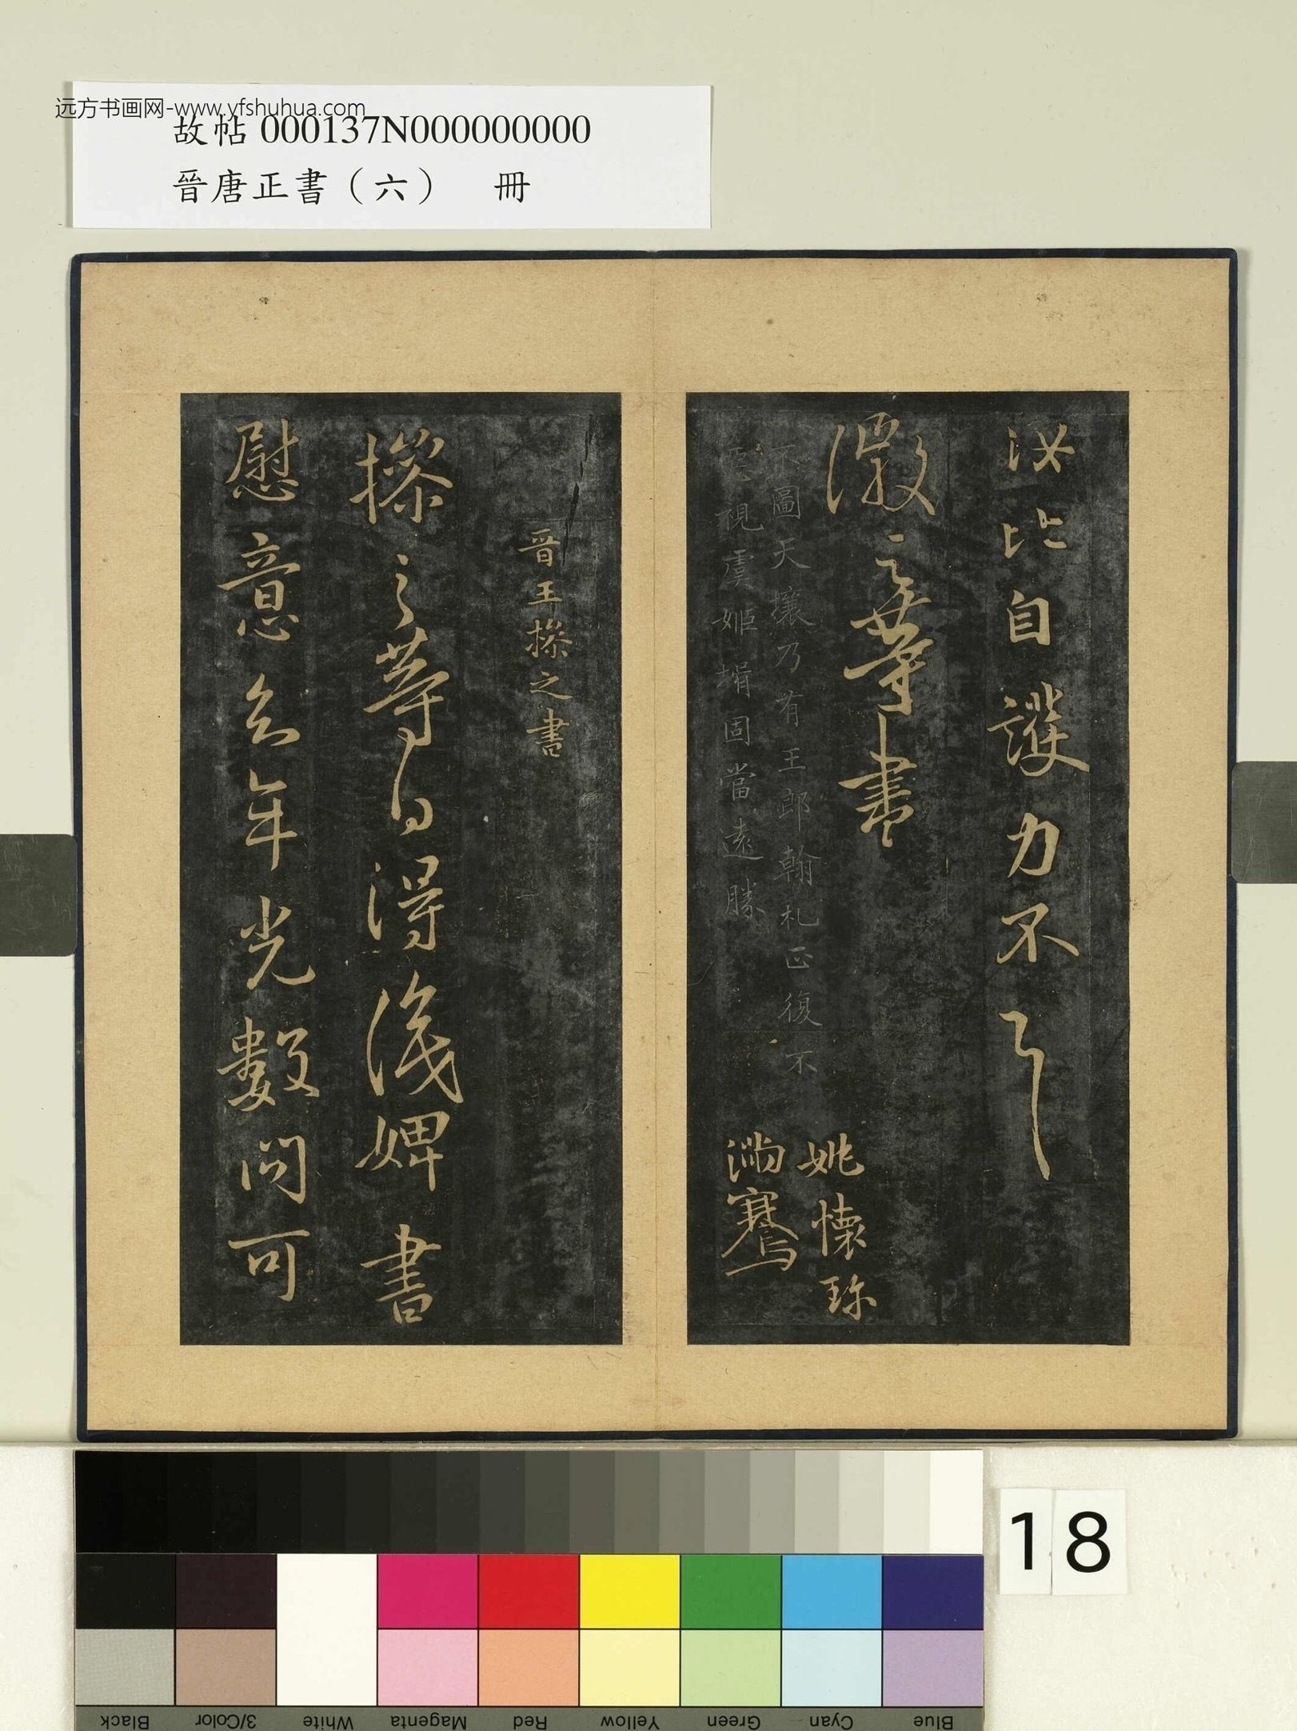 远方书画网-www.yfshuhua.com
故帖 000137N000000000
晉唐正書（六） 冊
汝比自護力不
凝之等書
不圖天壤乃有王郎翰札正復不
惡視虞姬壻固當遠勝
姚懷珍
滿騫
晉王操之書
操之等白得識婢書
慰意念年光數問可
18
Black
3/Color
White
Magenta
Red
Yellow
Green
Cyan
Blue